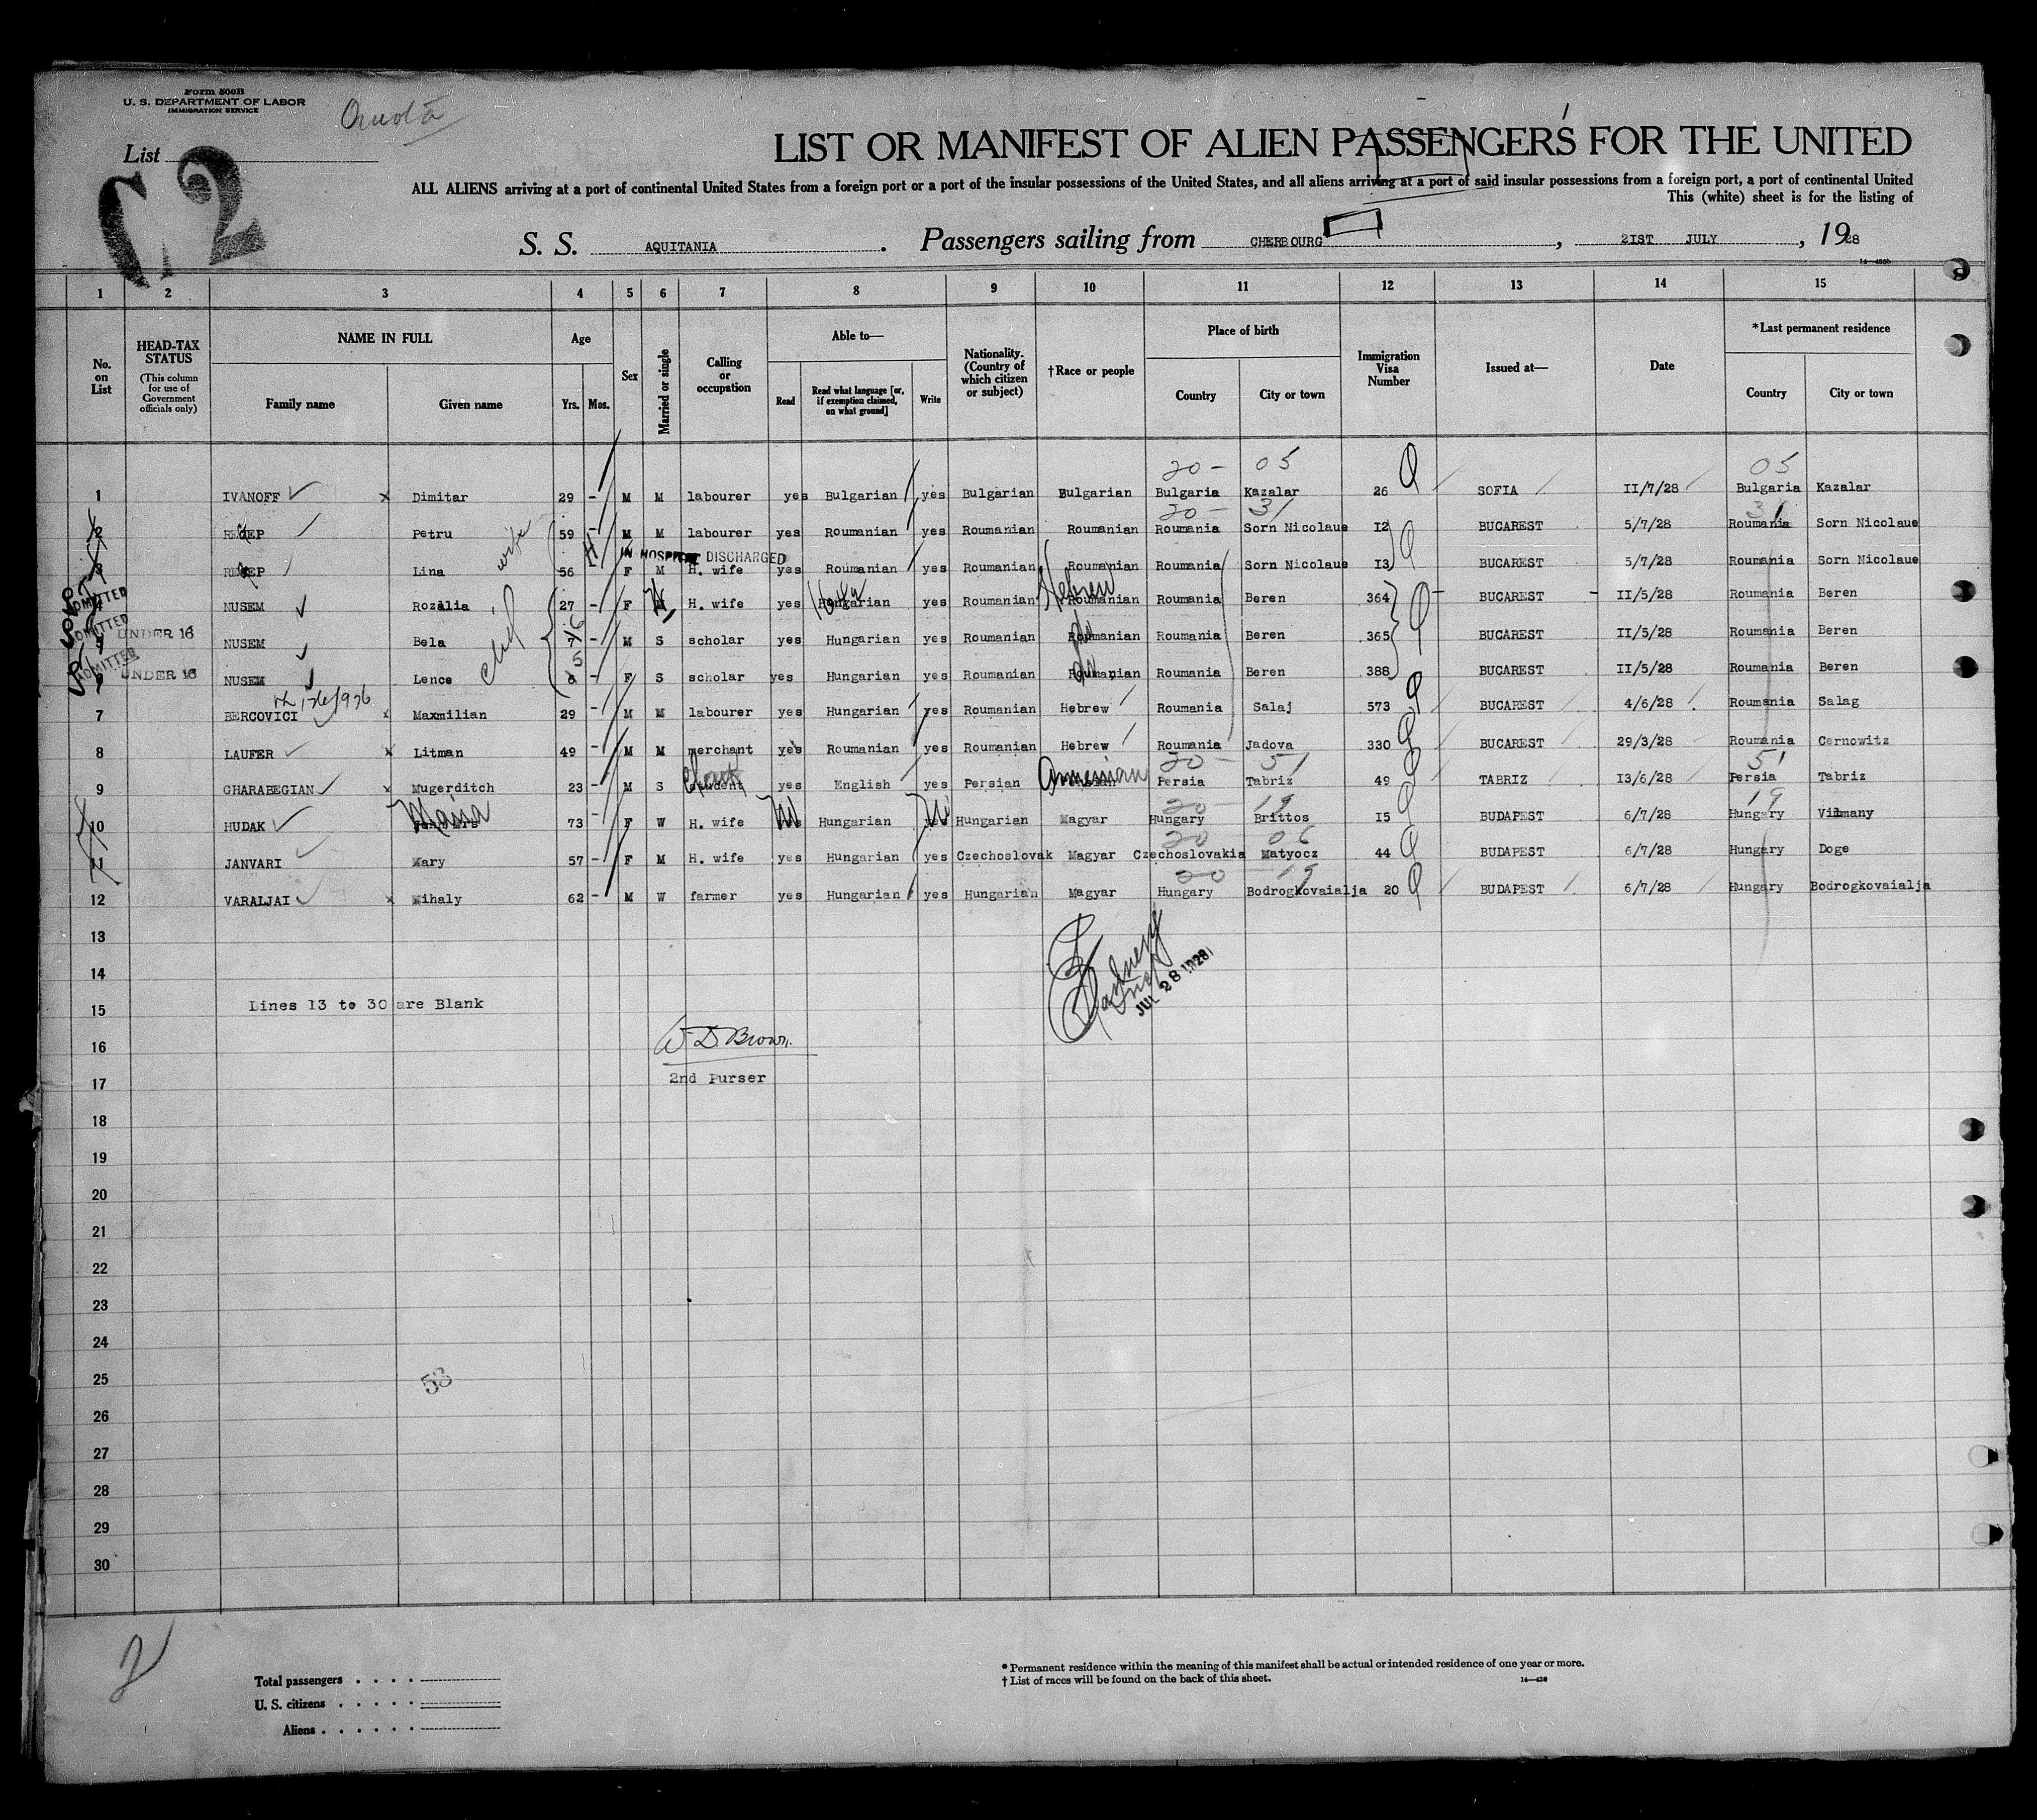 Form 500B
U. S. DEPARTMENT OF LABOR
IMMIGRATION SERVICE
List
2
LIST OR MANIFEST OF ALIEN PASSENGERS FOR THE UNITED
ALL ALIENS arriving at a port of continental United States from a foreign port or a port of the insular possessions of the United States, and all aliens arriving at a port of said insular possessions from a foreign port, a port of continental United
This (white) sheet is for the listing of
S. S. AQUITANIA . Passengers sailing from CHERBOURG , 21ST JULY , 1928
14—450b
1 2 3 4 5 6 7 8 9 10 11 12 13 14 15
No. on List
HEAD-TAX STATUS (This column for use of Government officials only)
NAME IN FULL
Family name Given name
Age
Yrs. Mos.
Sex
Married or single
Calling or occupation
Able to—
Read Read what language [or, if exemption claimed, on what ground] Write
Nationality. (Country of which citizen or subject)
†Race or people
Place of birth
Country City or town
Immigration Visa Number
Issued at—
Date
*Last permanent residence
Country City or town
20 - 05 05
1 IVANOFF x Dimitar 29 - M M labourer yes Bulgarian yes Bulgarian Bulgarian Bulgaria Kazalar 26 SOFIA II/7/28 Bulgaria Kazalar
20 - 31 31
2 Petru 59 - M M labourer yes Roumanian yes Roumanian Roumanian Roumania Sorn Nicolaus I2 BUCAREST 5/7/28 Roumania Sorn Nicolaus
wife IN HOSPITAL DISCHARGED
3 Lina 56 - F M H. wife yes Roumanian yes Roumanian Roumanian Roumania Sorn Nicolaus I3 BUCAREST 5/7/28 Roumania Sorn Nicolaus
ADMITTED Hebrew
4 NUSEM Rozalia 27 - F M H. wife yes Hungarian yes Roumanian Roumanian Roumania Beren 364 BUCAREST II/5/28 Roumania Beren
ADMITTED UNDER 16 6 do
5 NUSEM Bela 7 - M S scholar yes Hungarian yes Roumanian Roumanian Roumania Beren 365 BUCAREST II/5/28 Roumania Beren
ADMITTED UNDER 16 5 do
6 NUSEM Lence 6 - F S scholar yes Hungarian yes Roumanian Roumanian Roumania Beren 388 BUCAREST II/5/28 Roumania Beren
7 BERCOVICI x Maxmilian 29 - M M labourer yes Hungarian yes Roumanian Hebrew Roumania Salaj 573 BUCAREST 4/6/28 Roumania Salag
8 LAUFER x Litman 49 - M M merchant yes Roumanian yes Roumanian Hebrew Roumania Jadova 330 BUCAREST 29/3/28 Roumania Cernowitz
Armenian 20 - 51 51
9 CHARABEGIAN x Mugerditch 23 - M S student yes English yes Persian Persia Tabriz 49 TABRIZ I3/6/28 Persia Tabriz
20 - 19 19
10 HUDAK 73 - F W H. wife Hungarian Hungarian Magyar Hungary Brittos I5 BUDAPEST 6/7/28 Hungary Vilmany
20 06
11 JANVARI Mary 57 - F M H. wife yes Hungarian yes Czechoslovak Magyar Czechoslovakia Matyocz 44 BUDAPEST 6/7/28 Hungary Doge
20 - 19
12 VARALJAI x Mihaly 62 - M W farmer yes Hungarian yes Hungarian Magyar Hungary Bodrogkovaialja 20 BUDAPEST 6/7/28 Hungary Bodrogkovaialja
13
14
JUL 28 1928
15 Lines 13 to 30 are Blank
16 W. D. Brown.
17 2nd Purser
18
19
20
21
22
23
24
25 53
26
27
28
29
30
2
Total passengers . . . .
U. S. citizens . . . . .
Aliens . . . . . .
* Permanent residence within the meaning of this manifest shall be actual or intended residence of one year or more.
† List of races will be found on the back of this sheet.